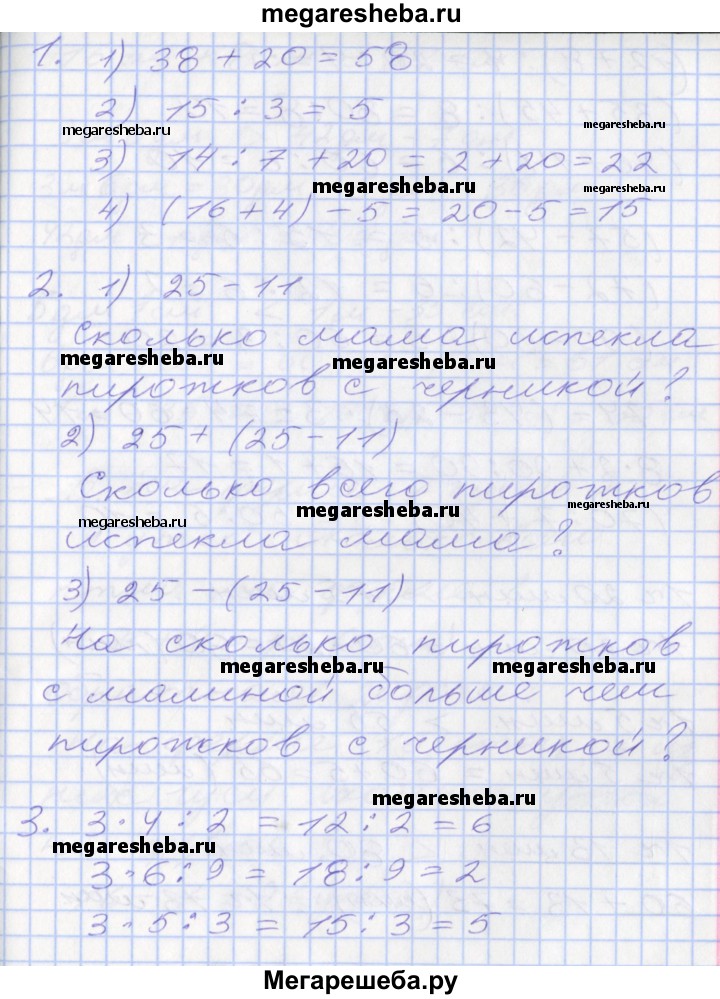 megaresheba.ru
1. 1) 38 + 20 = 58
2) 15 : 3 = 5
megaresheba.ru megaresheba.ru
3) 14 : 7 + 20 = 2 + 20 = 22
megaresheba.ru megaresheba.ru
4) (16 + 4) - 5 = 20 - 5 = 15
2. 1) 25 - 11
Сколько мама испекла
megaresheba.ru megaresheba.ru
пирожков с черникой?
2) 25 + (25 - 11)
Сколько всего пирожков
megaresheba.ru megaresheba.ru megaresheba.ru
испекла мама?
3) 25 - (25 - 11)
На сколько пирожков
megaresheba.ru megaresheba.ru
с малиной больше чем
пирожков с черникой?
megaresheba.ru
3. 3 · 4 : 2 = 12 : 2 = 6
megaresheba.ru
3 · 6 : 9 = 18 : 9 = 2
3 · 5 : 3 = 15 : 3 = 5
Мегарешеба.ру